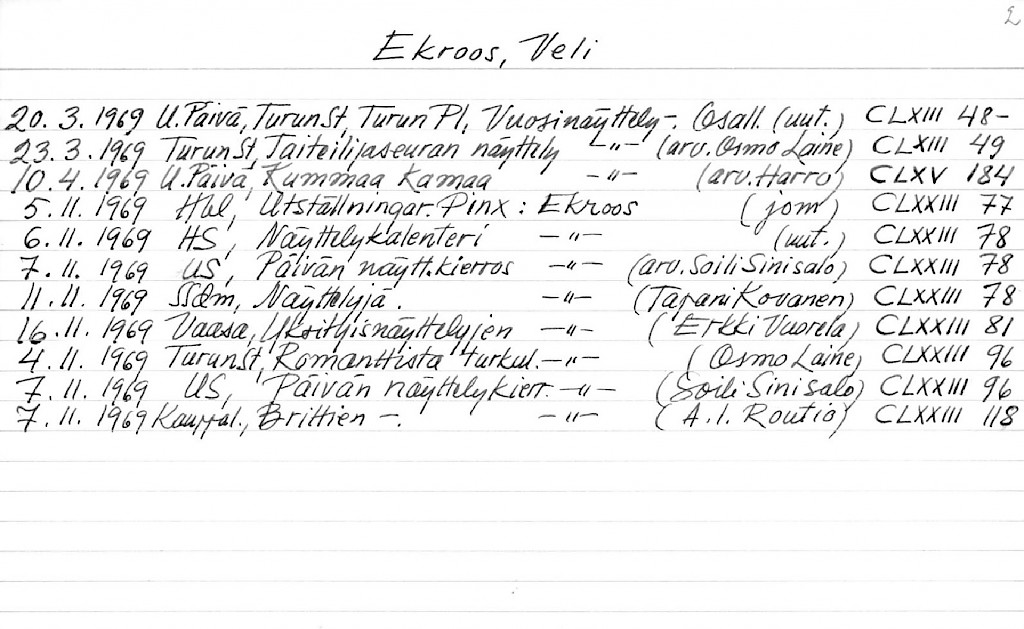 2
Ekroos, Veli
20. 3. 1969 U. Päivä, Turun St, Turun Pl, Vuosinäyttely -. Osall. (uut.) CLXIII 48-
23. 3. 1969 Turun St, Taiteilijaseuran näyttely -"- (arv. Osmo Laine) CLXIII 49
10. 4. 1969 U. Päivä, Kummaa kamaa -"- (arv. Harro) CLXV 184
5. 11. 1969 Hbl, Utställningar. Pinx: Ekroos (jom) CLXXIII 77
6. 11. 1969 HS, Näyttelykalenteri -"- (uut.) CLXXIII 78
7. 11. 1969 US, Päivän näytt.kierros -"- (arv. Soili Sinisalo) CLXXIII 78
11. 11. 1969 SSdm, Näyttelyjä. -"- (Tapani Kovanen) CLXXIII 78
16. 11. 1969 Vaasa, Yksityisnäyttelyjen -"- (Erkki Vuorela) CLXXIII 81
4. 11. 1969 Turun St, Romanttista turkul. -"- (Osmo Laine) CLXXIII 96
7. 11. 1969 US, Päivän näyttelykierr. -"- (Soili Sinisalo) CLXXIII 96
7. 11. 1969 Kauppal., Brittien -. -"- (A.I. Routio) CLXXIII 118